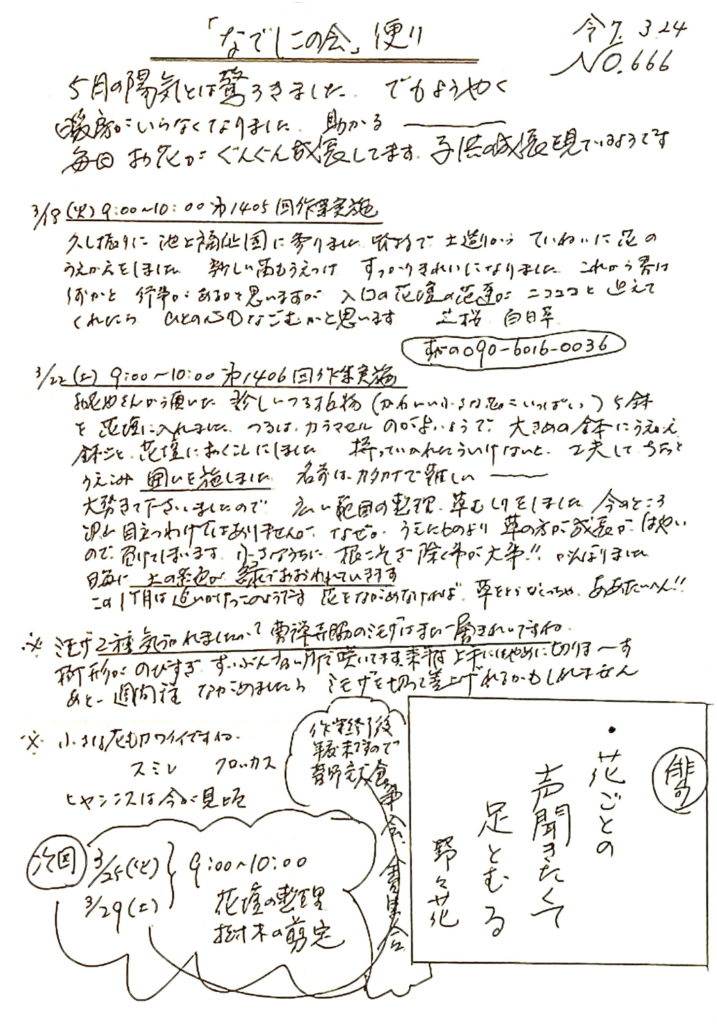 「なでしこの会」便り
令7. 3.24
NO.666
5月の陽気とは驚ろきました でもようやく
暖房がいらなくなりました 助かる ――
毎日 お花が ぐんぐん成長してます。子供の成長を見ているようです
3/18(火) 9:00~10:00 第1405回作業実施
久し振りに 池上福祉園に参りました 土造りから ていねいに 花の
うえかえをしました 新しい苗もうえつけ すっかりきれいになりました これから春は
何かと 行事が あるかと思いますが 入口の花壇の花達が ニコニコと 迎えて
くれたら 心もなごむかと思います 芝桜 白日草
090-6016-0036
3/22(土) 9:00~10:00 第1406回作業実施
さんから頂いた 珍しいつる植物 (かわいい小さな花がいっぱい) 5鉢
を 花壇に入れました つるは カラマセル のがよいようで 大きめの鉢にうえかえ
鉢ごと 花壇におくことにしました 持っていかれたらいけないと 工夫して ちょっと
うえこみ 囲いを施しました 名前は カタカナで難しい ――
大勢きて下さいましたので 広い範囲の整理 草むしりをしました 今のところ
目立つわけではありませんが なぜか うえたものより 草の方が成長が はやい
ので 負けてしまいます 小さなうちに 根こそぎ除く事が大事!! がんばりました
日毎に 土の茶色が 緑でおおわれています
この1ケ月は 追いかけっこのようです 花をながめなければ 草をとらなくっちゃ ああたいへん!!
※ ミモザ2種気づかれましたか? 脇のミモザはまた一層きれいですね
樹形が のびすぎ ずいぶん高い所で咲いてます 来年は 上手にはやめに切りま~す
あと一週間程 ながめましたら ミモザを切って差上げれるかもしれません
※ 小さな花もカワイイですね
スミレ クロッカス
ヒヤシンスは今が見頃
作業終了後
年度末ですので
食事会
次回
3/25(火)
3/29(土)
9:00~10:00
花壇の整理
樹木の剪定
俳句
・花ごとの
声聞きたくて
足とむる
野々花